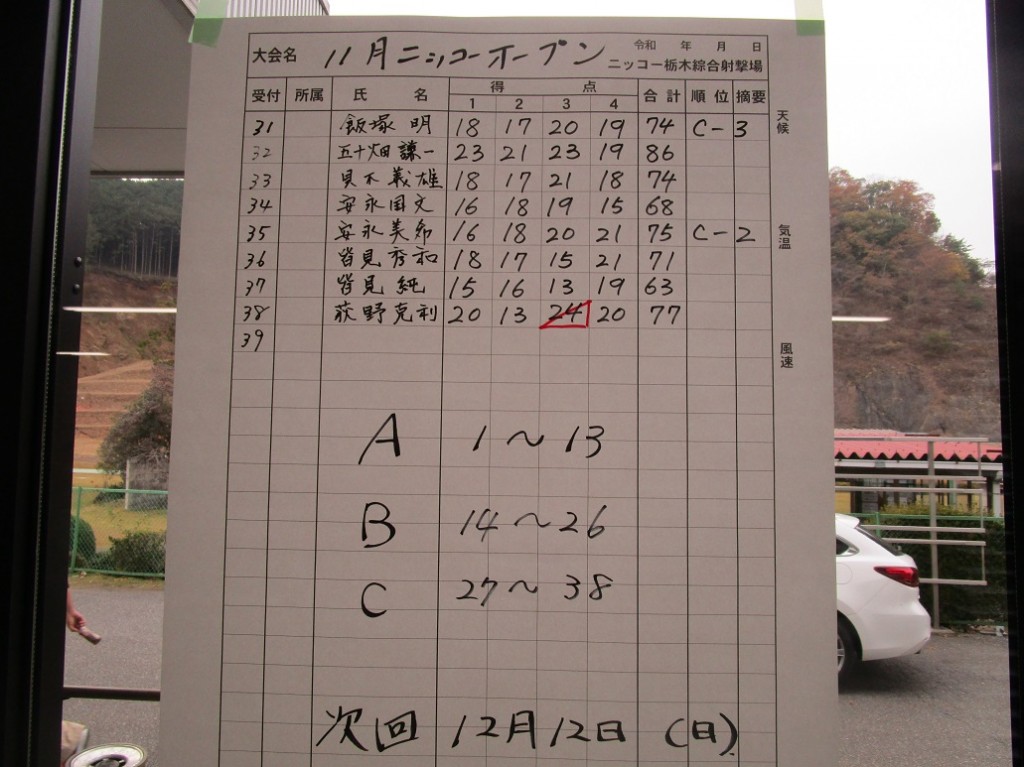 大会名 11月ニッコーオープン 令和 年 月 日
ニッコー栃木綜合射撃場
受付 所属 氏 名 得 点 合計 順位 摘要
1 2 3 4
天候
31 飯塚 明 18 17 20 19 74 C-3
32 五十畑 謙一 23 21 23 19 86
33 貝木 義雄 18 17 21 18 74
34 安永国文 16 18 19 15 68
35 安永美希 16 18 20 21 75 C-2
気温
36 皆見秀和 18 17 15 21 71
37 皆見 純 15 16 13 19 63
38 荻野克利 20 13 24 20 77
39
風速
A 1～13
B 14～26
C 27～38
次回 12月12日 (日)